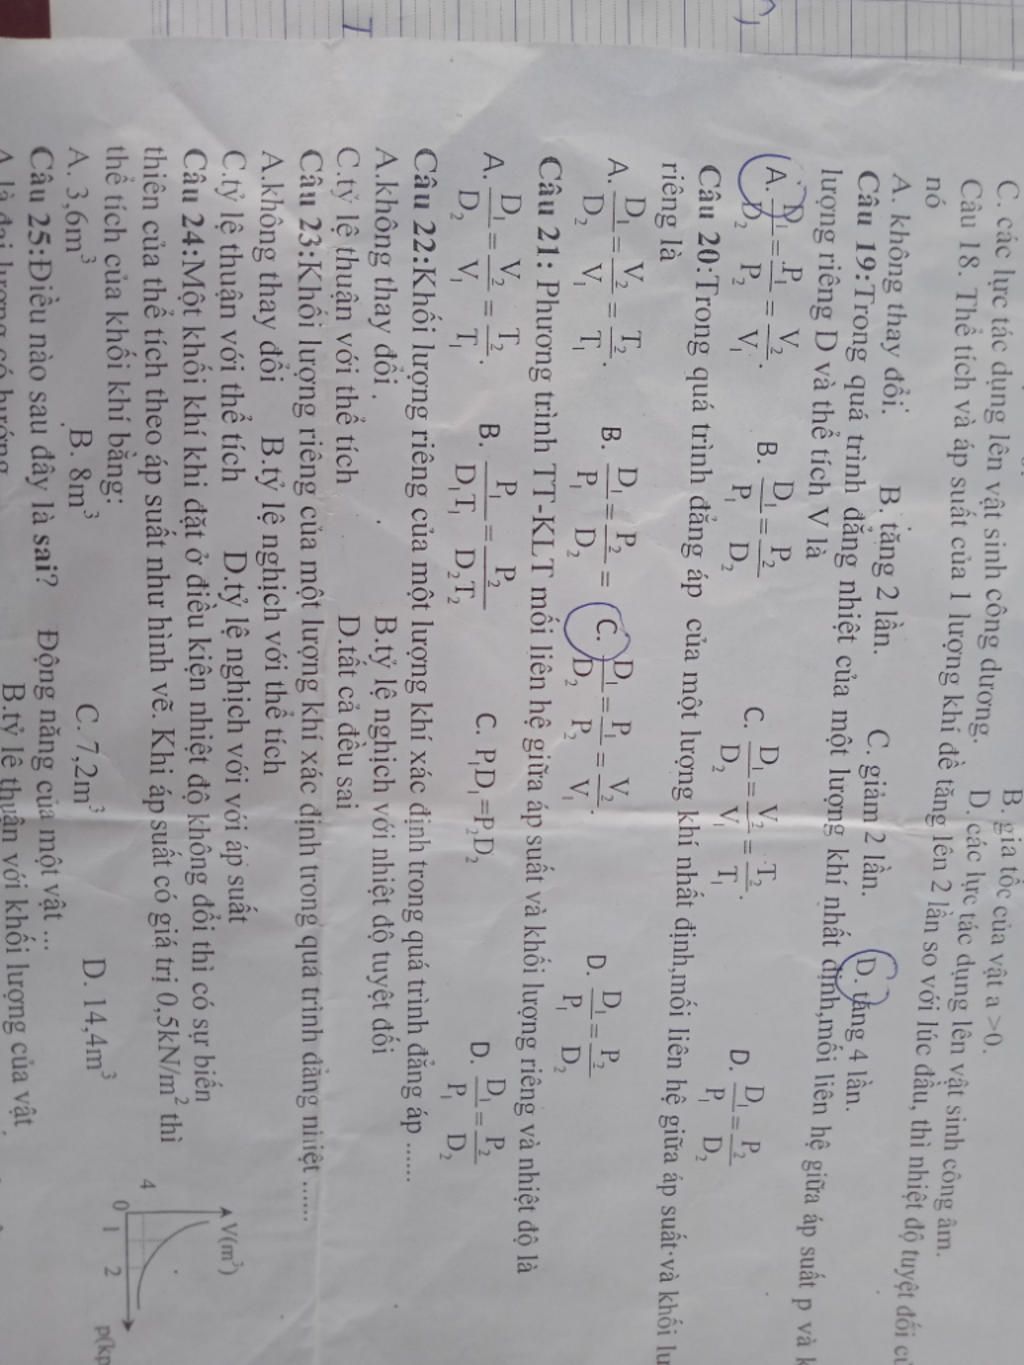 B. gia tốc của vật a >0.
C. các lực tác dụng lên vật sinh công dương. D. các lực tác dụng lên vật sinh công âm.
Câu 18. Thể tích và áp suất của 1 lượng khí đề tăng lên 2 lần so với lúc đầu, thì nhiệt độ tuyệt đối
nó
A. không thay đổi. B. tăng 2 lần. C. giảm 2 lần. D. tăng 4 lần.
Câu 19:Trong quá trình đẳng nhiệt của một lượng khí nhất định,mối liên hệ giữa áp suất p và
lượng riêng D và thể tích V là
A. D₁/D₂ = P₁/P₂ = V₂/V₁. B. D₁/P₁ = P₂/D₂ C. D₁/D₂ = V₂/V₁ = T₂/T₁. D. D₁/P₁ = P₂/D₂
Câu 20:Trong quá trình đẳng áp của một lượng khí nhất định,mối liên hệ giữa áp suất và khối
riêng là
A. D₁/D₂ = V₂/V₁ = T₂/T₁. B. D₁/P₁ = P₂/D₂ = C. D₁/D₂ = P₁/P₂ = V₂/V₁. D. D₁/P₁ = P₂/D₂
Câu 21: Phương trình TT-KLT mối liên hệ giữa áp suất và khối lượng riêng và nhiệt độ là
A. D₁/D₂ = V₂/V₁ = T₂/T₁. B. P₁/D₁T₁ = P₂/D₂T₂ C. P₁D₁=P₂D₂ D. D₁/P₁ = P₂/D₂
Câu 22:Khối lượng riêng của một lượng khí xác định trong quá trình đẳng áp ......
A.không thay đổi. B.tỷ lệ nghịch với nhiệt độ tuyệt đối
C.tỷ lệ thuận với thể tích D.tất cả đều sai
Câu 23:Khối lượng riêng của một lượng khí xác định trong quá trình đẳng nhiệt ......
A.không thay đổi B.tỷ lệ nghịch với thể tích
C.tỷ lệ thuận với thể tích D.tỷ lệ nghịch với với áp suất
Câu 24:Một khối khí khi đặt ở điều kiện nhiệt độ không đổi thì có sự biến
thiên của thể tích theo áp suất như hình vẽ. Khi áp suất có giá trị 0,5kN/m² thì
thể tích của khối khí bằng:
A. 3,6m³ B. 8m³ C. 7,2m³ D. 14,4m³
V(m³)
4
0 1 2
p(kp
Câu 25:Điều nào sau đây là sai? Động năng của một vật ...
A là đại lượng có hướng B.tỷ lệ thuận với khối lượng của vật